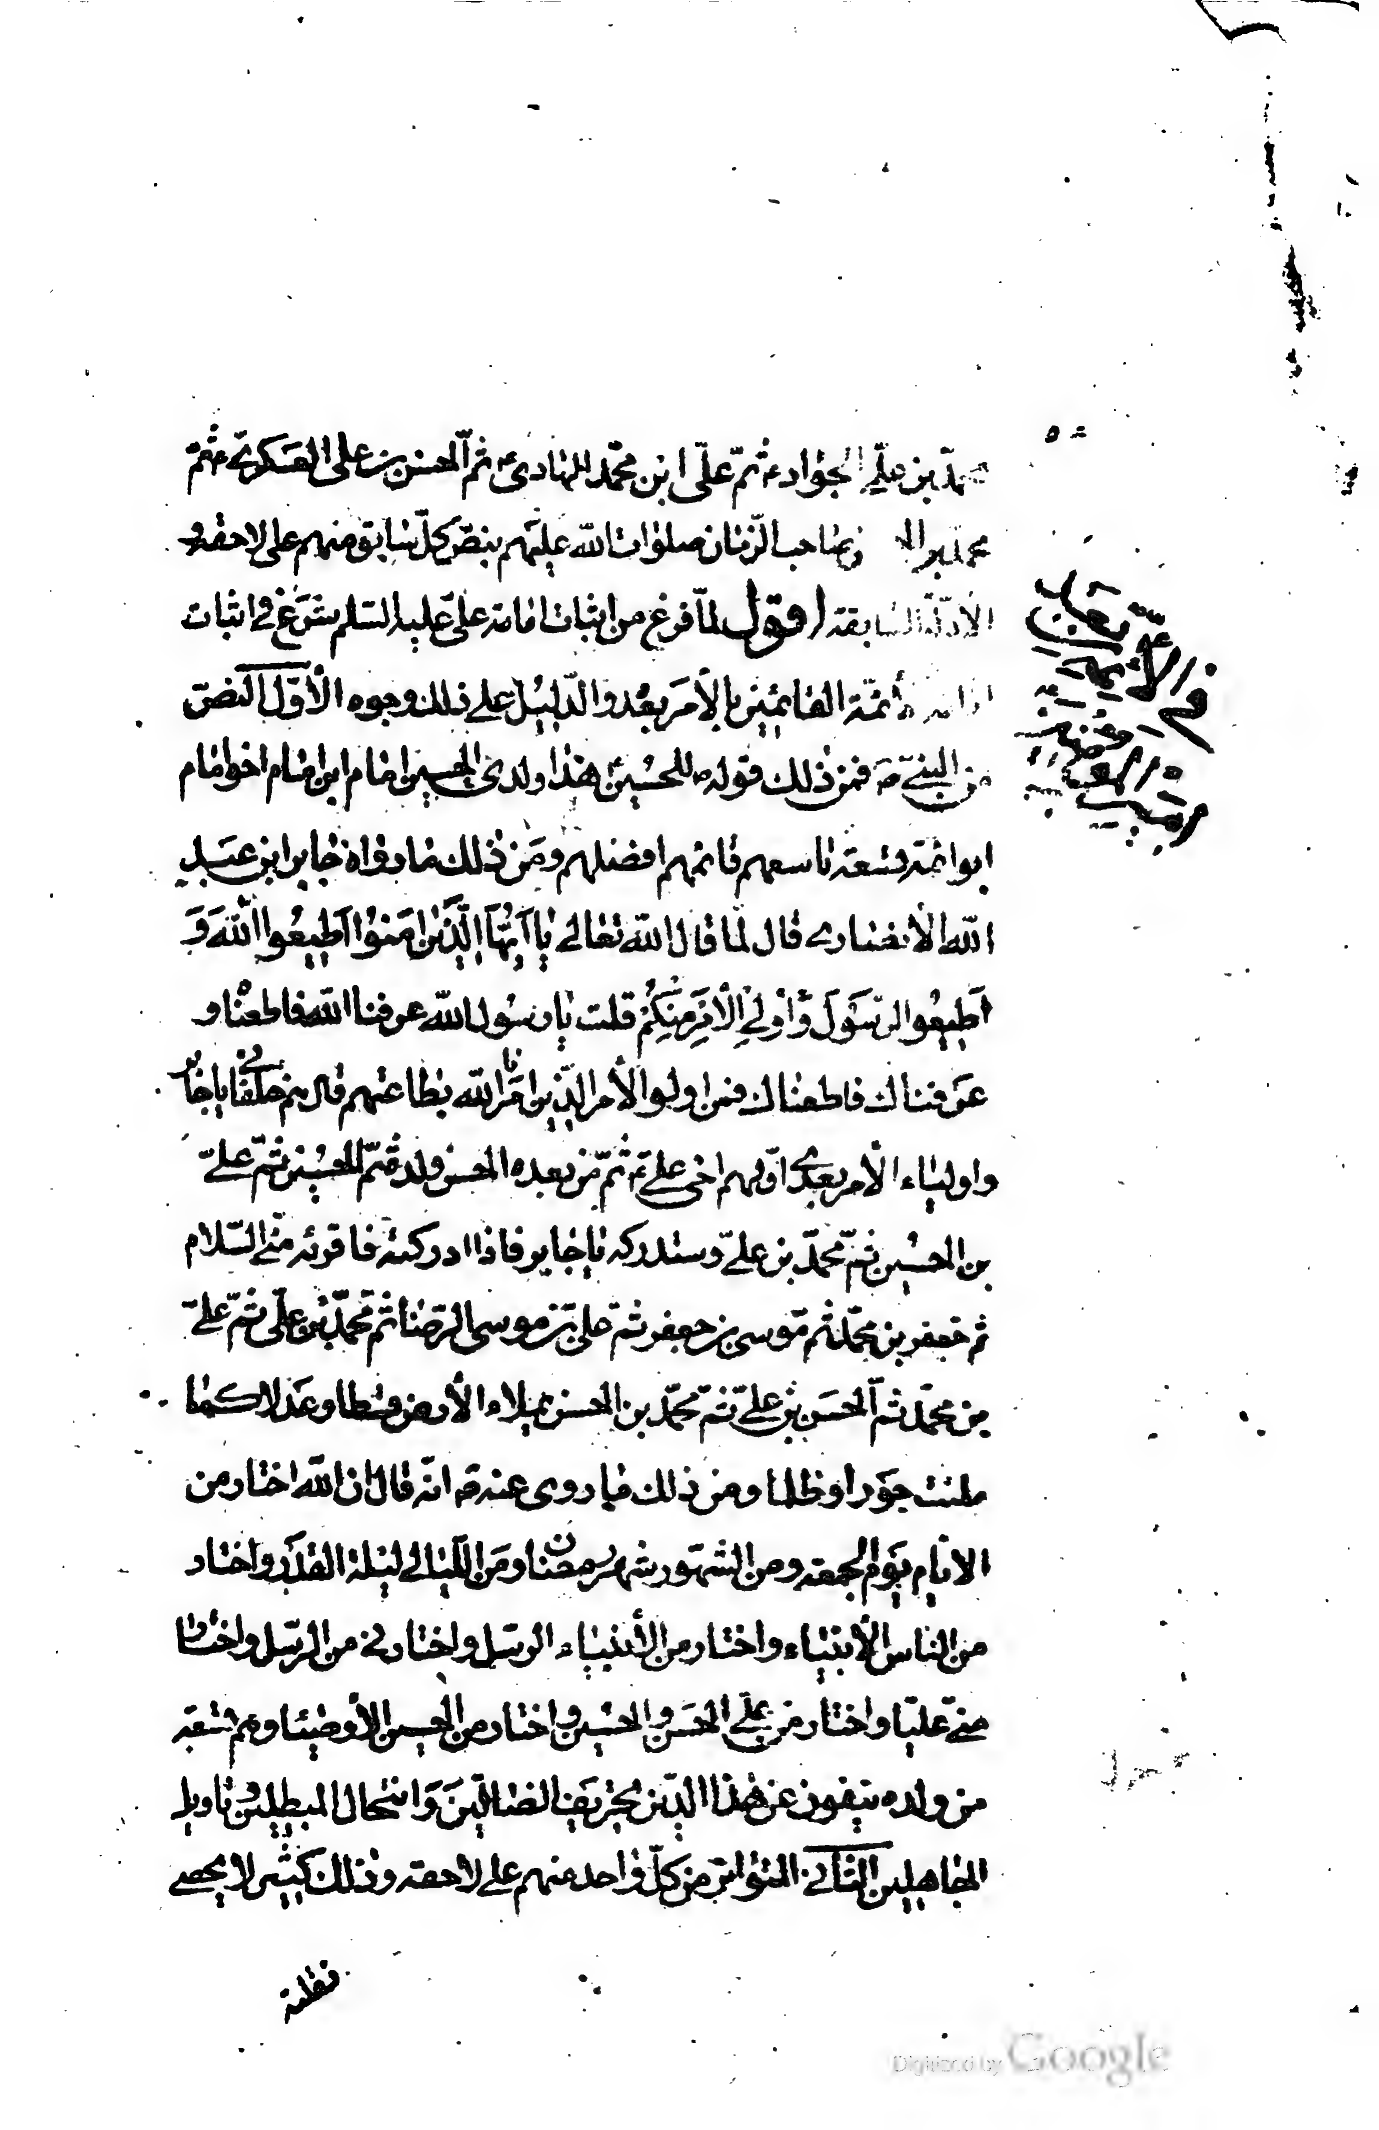 محمد بن علي الجواد ع ثمّ علّى ابن محمّد الهادى ع ثم الحسن بن على العسكرى ع ثمّ
محمد بن صاحب الزمان صلوات الله عليهم بنصّ كلّ سابق منهم على لاحقه و
الأدلّة السابقة اقول لمّا فرغ من اثبات امامة علىّ عليه السلم شرع فى اثبات
الأئمّة القائمين بالأمر بعده والدّليل على ذلك وجوه الأوّل النصّ
من النبىّ ص فمن ذلك قوله ص للحسين ع هذا ولدى الحسين امام ابن امام اخو امام
ابو ائمة تسعة تاسعهم قائمهم افضلهم ومن ذلك ما رواه جابر ابن عبد
الله الأنصارى قال لما قال الله تعالى يا ايّها الّذين امنوا اطيعوا الله وَ
اَطيعُوا الرّسَولَ وَاُولِى الْاَمْرِ مِنْكُمْ قلت يا رسول الله عرفنا الله فاطعناه و
عرفناك فاطعناك فمن اولوا الأمر الذين امرنا الله بطاعتهم قال هم خلفائى يا جابر
واولياء الأمر بعدى اوّلهم اخى علىّ ثمّ من بعده الحسن ولده ثمّ الحسين ثمّ علىّ
بن الحسين ثمّ محمّد بن علىّ وستدركه يا جابر فاذا ادركته فاقرئه منّى السّلام
ثم جعفر بن محمّد ثم موسى بن جعفر ثمّ على بن موسى الرضا ثم محمّد بن علّى ثمّ علىّ
بن محمّد ثم الحسَن بن علىّ ثمّ محمّد بن الحسن يملاء الأرض قسطا وعدلا كما
ملئت جورا وظلما ومن ذلك ما روى عنه ص انّه قال ان الله اختار من
الايّام يوم الجمعه ومن الشهور شهر رمضان ومن الليالى ليلة القدر واختار
من الناس الأنبياء واختار من الأنبياء الرسل واختارنى من الرسل واختار
منّى عليّا واختار من علىّ الحسَن والحسين واختار من الحسين الأوصياء وهم تسعة
من ولده ينفون عن هذا الدّين تحريف الضالّين وانتحال المبطلين وتاويل
الجاهلين الثانى المتواتر من كلّ واحد منهم على لاحقه وذلك كثير لا يحصى
نقلته
فى الأئمّة
Digitized by Google